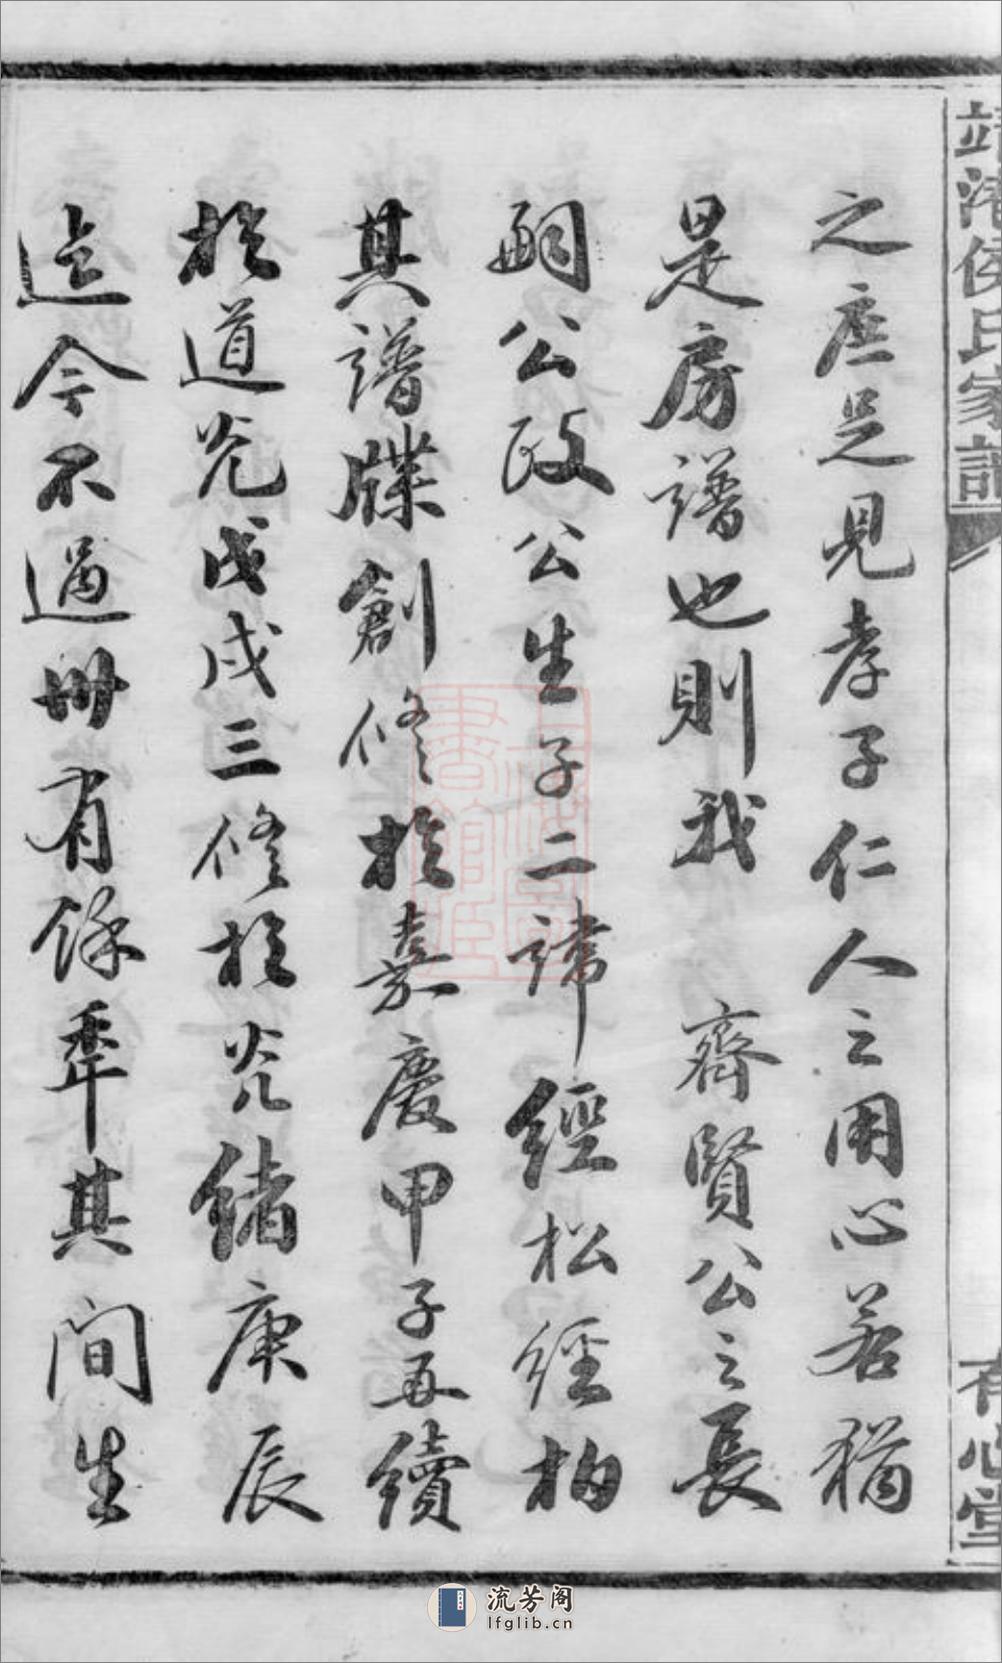 靖港侯氏家譜
有心堂
之庶足見孝子仁人之用心若猶
是房譜也則我 齋賢公之長
嗣公政公生子二諱經松經柏
其譜牒創修於嘉慶甲子再續
於道光戊戌三修於光緒庚辰
迄今不過卅有餘年其間生
上海圖書館藏
流芳阁
lfglib.cn